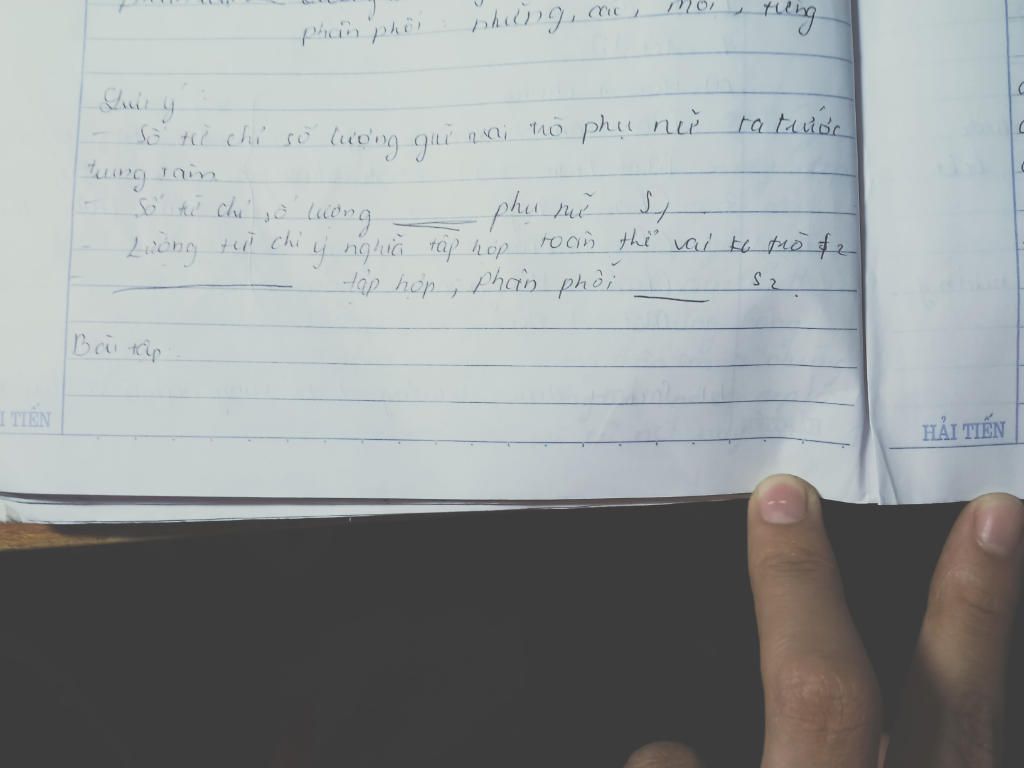 phân phối : những, các, mỗi, từng
Lưu ý :
- Số từ chỉ số lượng giữ vai trò phụ ngữ ra trước
trung tâm
- Số từ chỉ số lượng phụ ngữ S1
- Lượng từ chỉ ý nghĩa tập hợp toàn thể vai trò
- tập hợp, phân phối S2.
Bài tập
I TIẾN
HẢI TIẾN